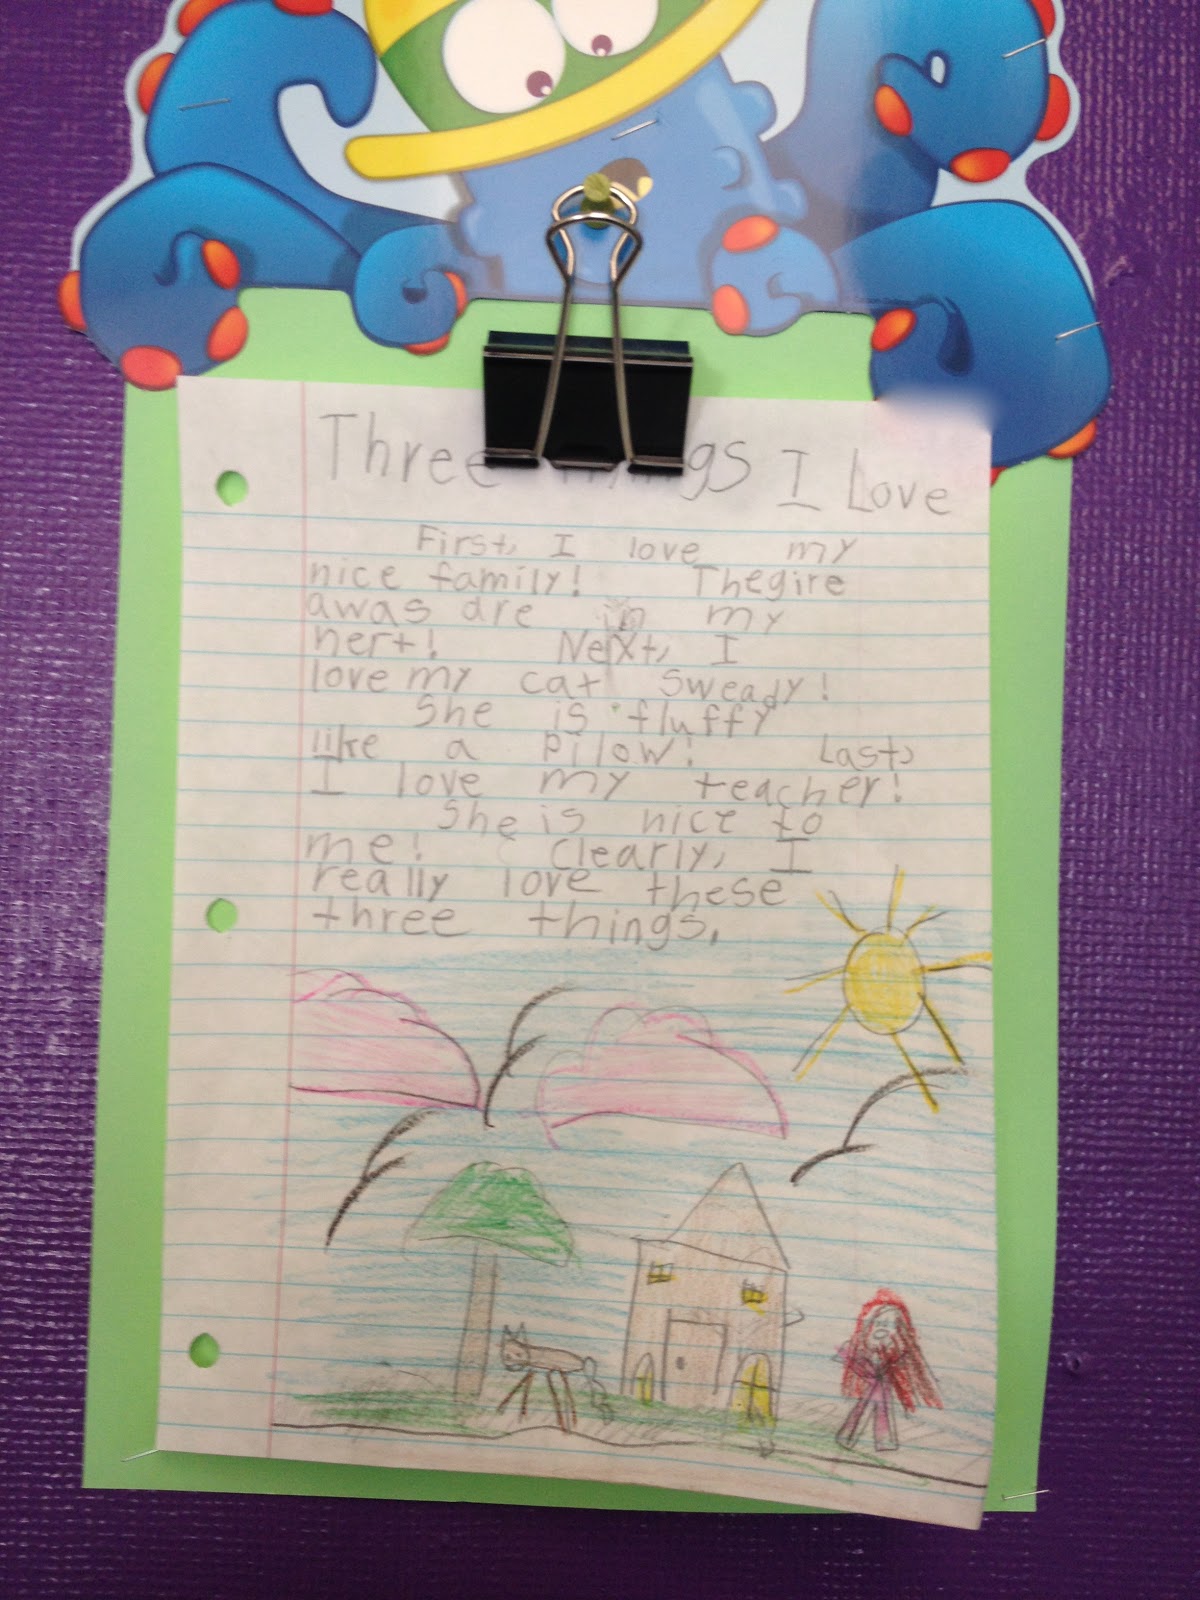 Three Things I Love
First, I love my
nice family! Thegire
awas are in my
hert! Next, I
love my cat Sweady!
She is fluffy
like a pilow! Last,
I love my teacher!
She is nice to
me! Clearly, I
really love these
three things.